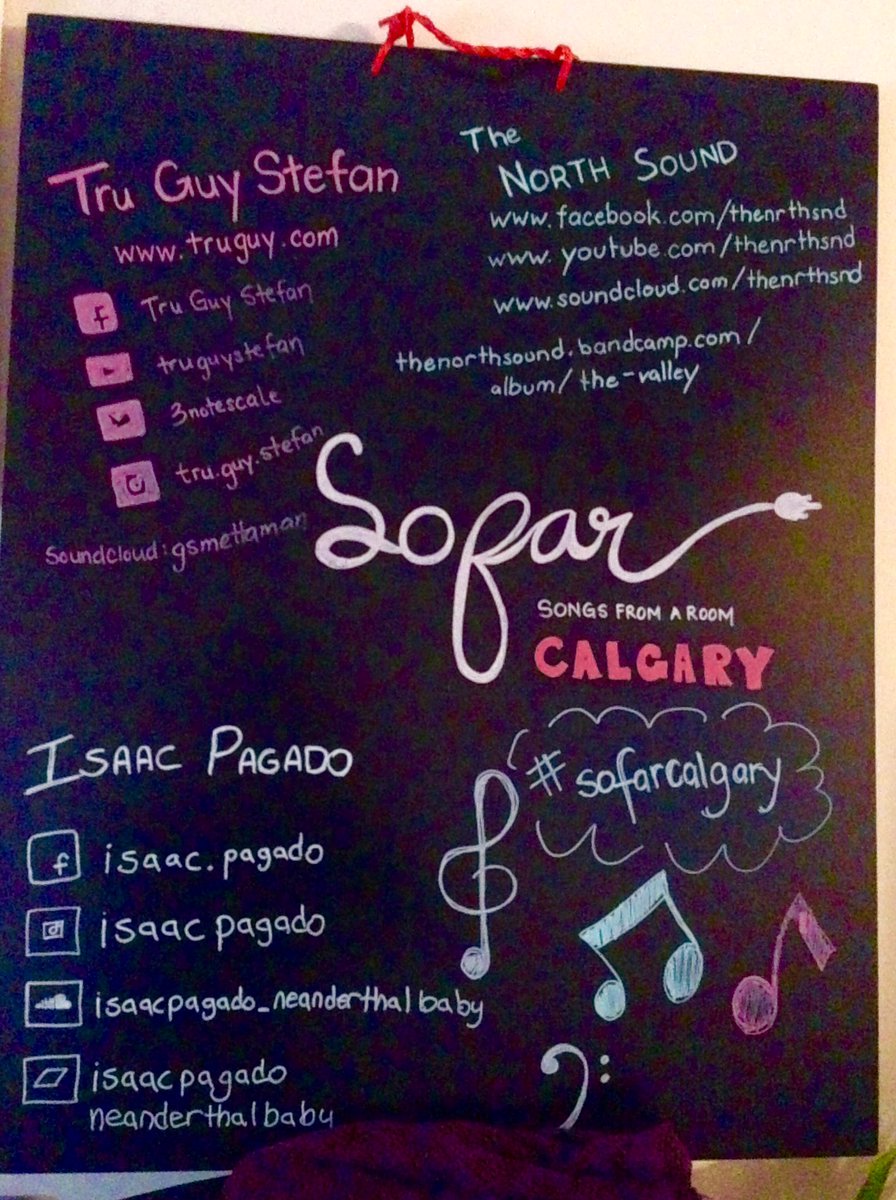 Tru Guy Stefan
www.truguy.com
Tru Guy Stefan
truguystefan
3notescale
tru.guy.stefan
Soundcloud: gsmettaman
The
NORTH SOUND
www.facebook.com/thenrthsnd
www.youtube.com/thenrthsnd
www.soundcloud.com/thenrthsnd
thenorthsound.bandcamp.com/
album/the-valley
Sofar
SONGS FROM A ROOM
CALGARY
#sofarcalgary
ISAAC PAGADO
isaac.pagado
isaacpagado
isaacpagado_neanderthalbaby
isaacpagado
neanderthalbaby